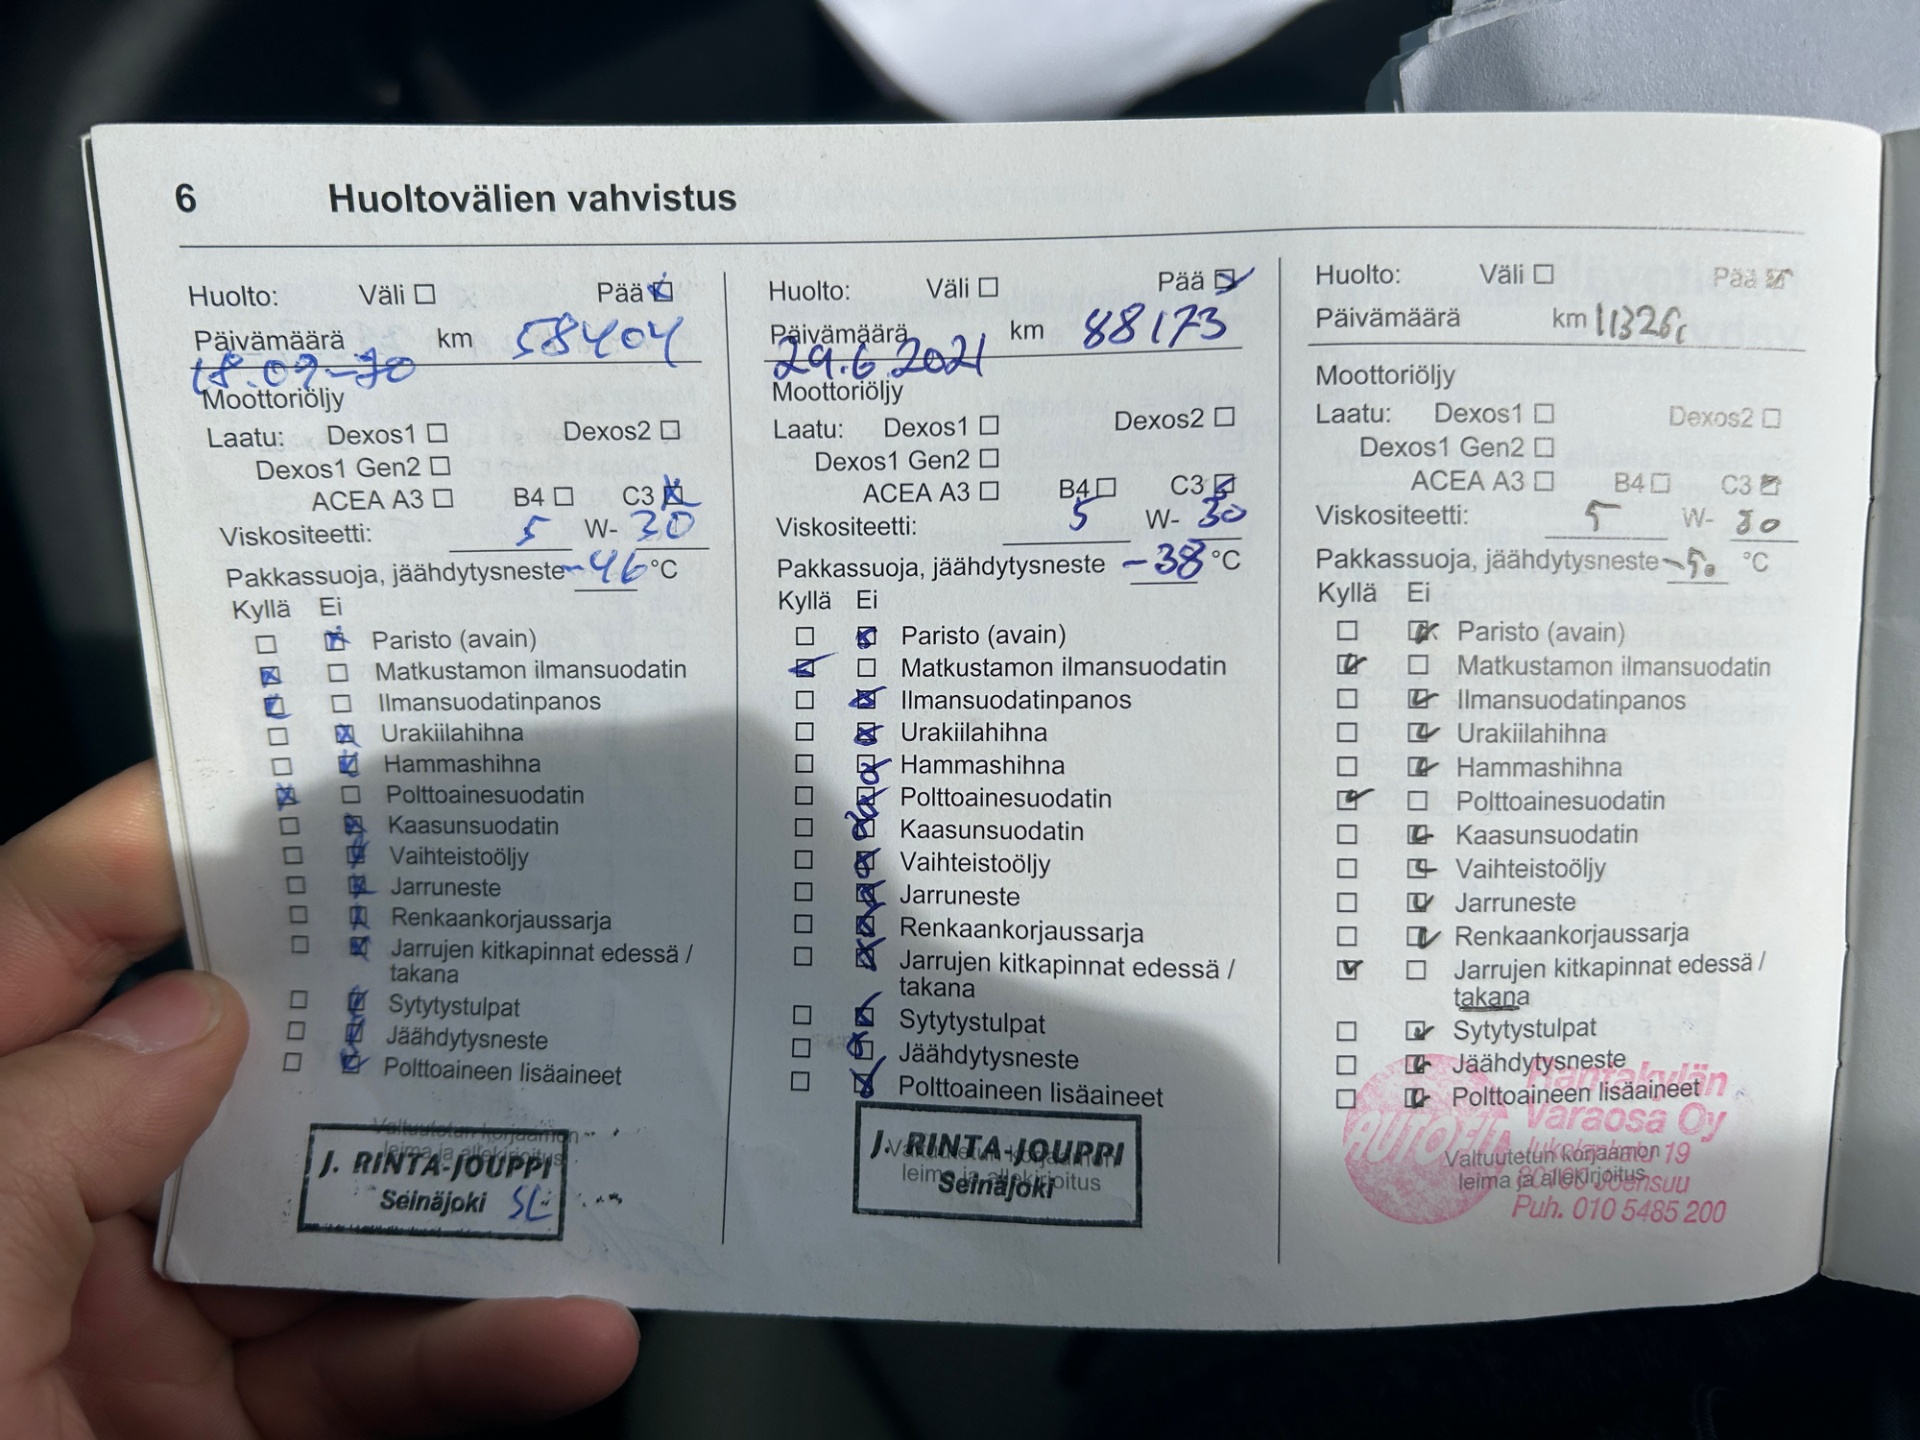 6 Huoltovälien vahvistus
Huolto: Väli Pää
Päivämäärä km 58404
18.09-20
Moottoriöljy
Laatu: Dexos1 Dexos2
Dexos1 Gen2
ACEA A3 B4 C3
Viskositeetti: 5 W- 30
Pakkassuoja, jäähdytysneste -46 °C
Kyllä Ei
Paristo (avain)
Matkustamon ilmansuodatin
Ilmansuodatinpanos
Urakiilahihna
Hammashihna
Polttoainesuodatin
Kaasunsuodatin
Vaihteistoöljy
Jarruneste
Renkaankorjaussarja
Jarrujen kitkapinnat edessä /
takana
Sytytystulpat
Jäähdytysneste
Polttoaineen lisäaineet
Valtuutetun korjaamon
leima ja allekirjoitus
J. RINTA-JOUPPI
Seinäjoki SL
Huolto: Väli Pää
Päivämäärä km 88173
29.6.2021
Moottoriöljy
Laatu: Dexos1 Dexos2
Dexos1 Gen2
ACEA A3 B4 C3
Viskositeetti: 5 W- 30
Pakkassuoja, jäähdytysneste -38 °C
Kyllä Ei
Paristo (avain)
Matkustamon ilmansuodatin
Ilmansuodatinpanos
Urakiilahihna
Hammashihna
Polttoainesuodatin
Kaasunsuodatin
Vaihteistoöljy
Jarruneste
Renkaankorjaussarja
Jarrujen kitkapinnat edessä /
takana
Sytytystulpat
Jäähdytysneste
Polttoaineen lisäaineet
Valtuutetun korjaamon
leima ja allekirjoitus
J. RINTA-JOUPPI
Seinäjoki
Huolto: Väli Pää
Päivämäärä km
Moottoriöljy
Laatu: Dexos1 Dexos2
Dexos1 Gen2
ACEA A3 B4 C3
Viskositeetti: 5 W- 30
Pakkassuoja, jäähdytysneste °C
Kyllä Ei
Paristo (avain)
Matkustamon ilmansuodatin
Ilmansuodatinpanos
Urakiilahihna
Hammashihna
Polttoainesuodatin
Kaasunsuodatin
Vaihteistoöljy
Jarruneste
Renkaankorjaussarja
Jarrujen kitkapinnat edessä /
takana
Sytytystulpat
Jäähdytysneste
Polttoaineen lisäaineet
Valtuutetun korjaamon
leima ja allekirjoitus
Rantakylän
Varaosa Oy
Joensuu
Puh. 010 5485 200